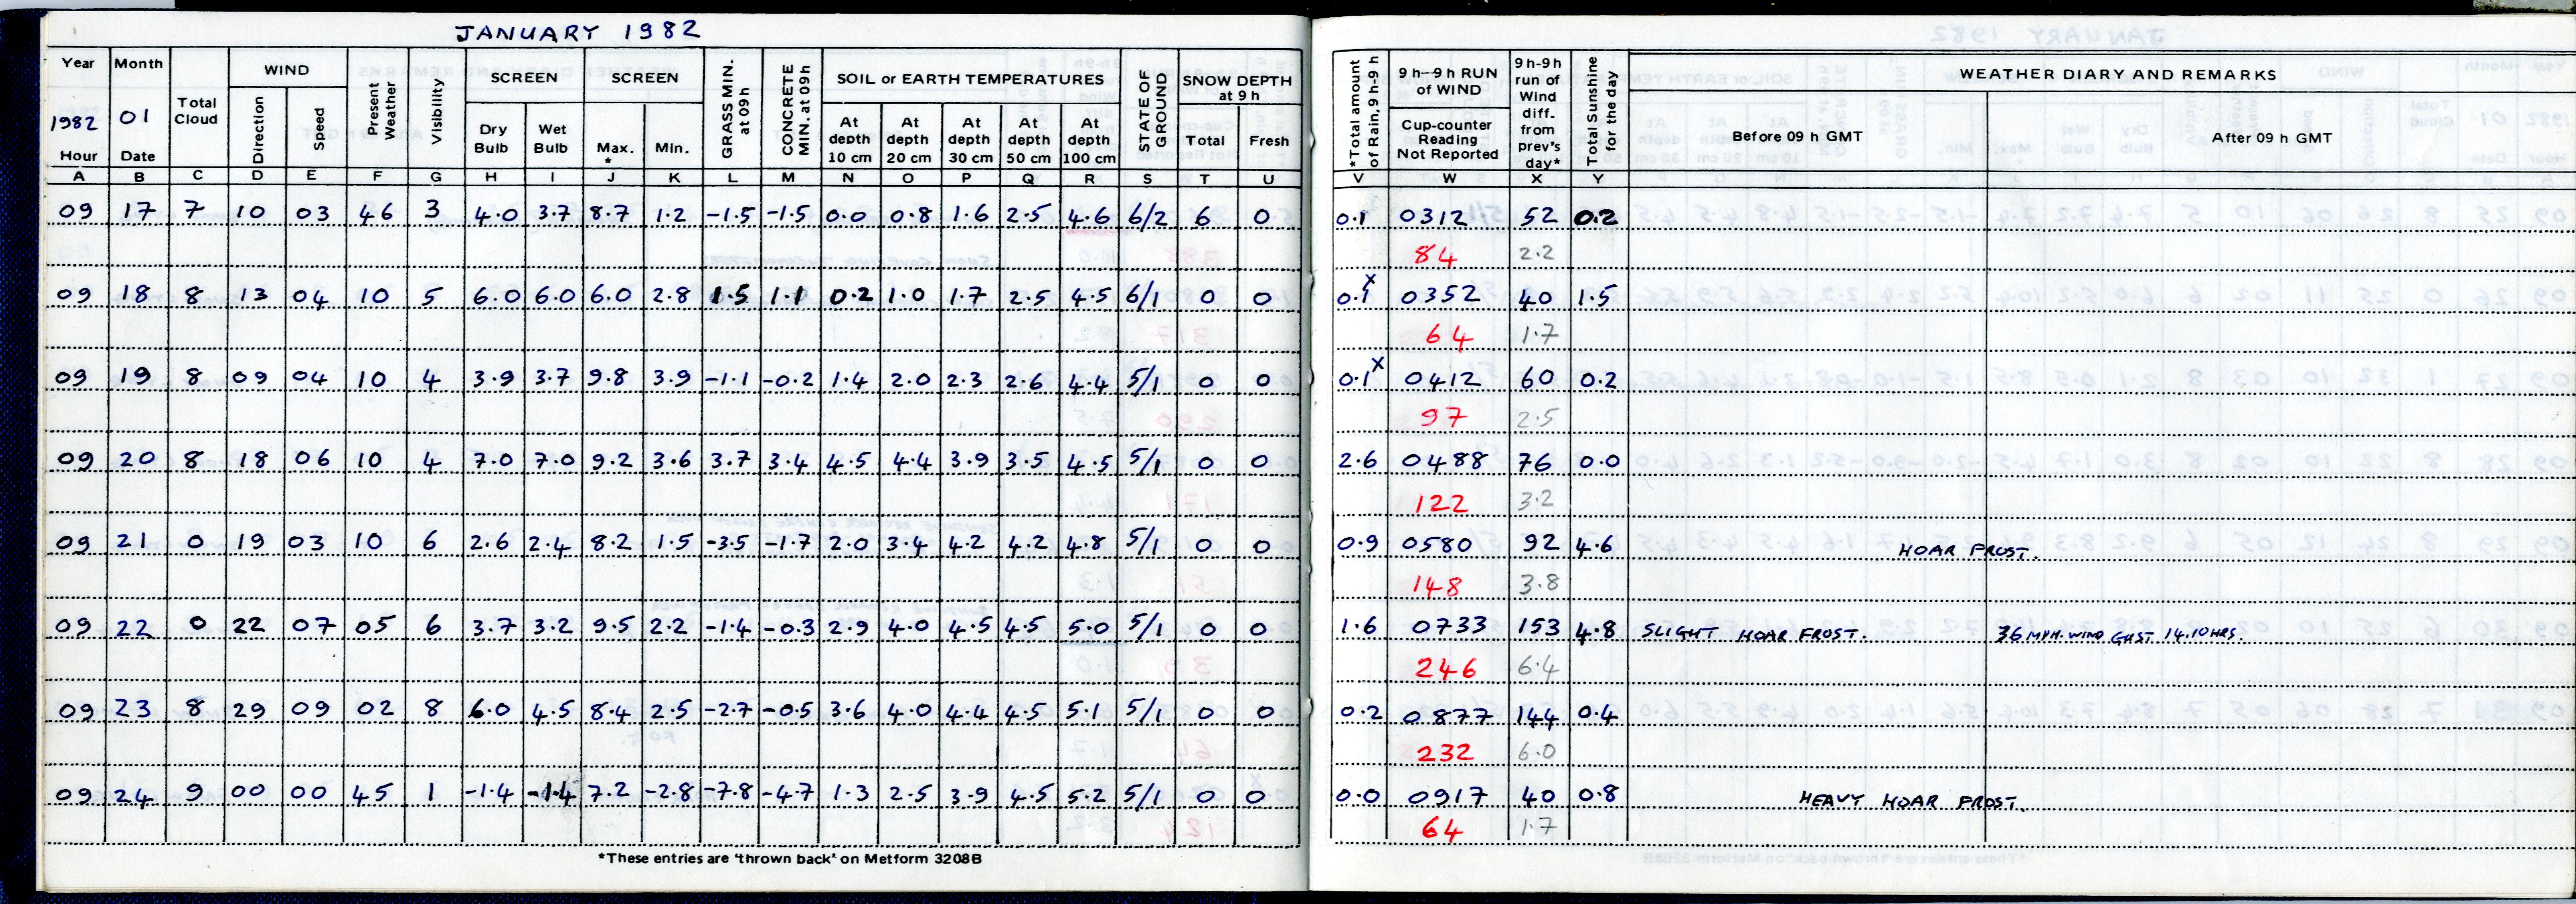 JANUARY 1982
Year Month Total Cloud WIND Present Weather Visibility SCREEN SCREEN GRASS MIN. at 09h CONCRETE MIN. at 09h SOIL or EARTH TEMPERATURES STATE OF GROUND SNOW DEPTH at 9 h *Total amount of Rain, 9h-9 h 9 h—9 h RUN of WIND 9h-9h run of Wind diff. from prev's day* Total Sunshine for the day WEATHER DIARY AND REMARKS
1982 01 Direction Speed Dry Bulb Wet Bulb Max. * Min. At depth 10 cm At depth 20 cm At depth 30 cm At depth 50 cm At depth 100 cm Total Fresh Cup-counter Reading Not Reported Before 09 h GMT After 09 h GMT
Hour Date
A B C D E F G H I J K L M N O P Q R S T U V W X Y
09 17 7 10 03 46 3 4.0 3.7 8.7 1.2 -1.5 -1.5 0.0 0.8 1.6 2.5 4.6 6/2 6 0 0.1 0312 52 0.2
84 2.2
09 18 8 13 04 10 5 6.0 6.0 6.0 2.8 1.5 1.1 0.2 1.0 1.7 2.5 4.5 6/1 0 0 0.1x 0352 40 1.5
64 1.7
09 19 8 09 04 10 4 3.9 3.7 9.8 3.9 -1.1 -0.2 1.4 2.0 2.3 2.6 4.4 5/1 0 0 0.1x 0412 60 0.2
97 2.5
09 20 8 18 06 10 4 7.0 7.0 9.2 3.6 3.7 3.4 4.5 4.4 3.9 3.5 4.5 5/1 0 0 2.6 0488 76 0.0
122 3.2
09 21 0 19 03 10 6 2.6 2.4 8.2 1.5 -3.5 -1.7 2.0 3.4 4.2 4.2 4.8 5/1 0 0 0.9 0580 92 4.6 HOAR FROST.
148 3.8
09 22 0 22 07 05 6 3.7 3.2 9.5 2.2 -1.4 -0.3 2.9 4.0 4.5 4.5 5.0 5/1 0 0 1.6 0733 153 4.8 SLIGHT HOAR FROST. 36 MPH. WIND GUST 14.10 HRS.
246 6.4
09 23 8 29 09 02 8 6.0 4.5 8.4 2.5 -2.7 -0.5 3.6 4.0 4.4 4.5 5.1 5/1 0 0 0.2 0877 144 0.4
232 6.0
09 24 9 00 00 45 1 -1.4 -1.4 7.2 -2.8 -7.8 -4.7 1.3 2.5 3.9 4.5 5.2 5/1 0 0 0.0 0917 40 0.8 HEAVY HOAR FROST.
64 1.7
*These entries are 'thrown back' on Metform 3208B